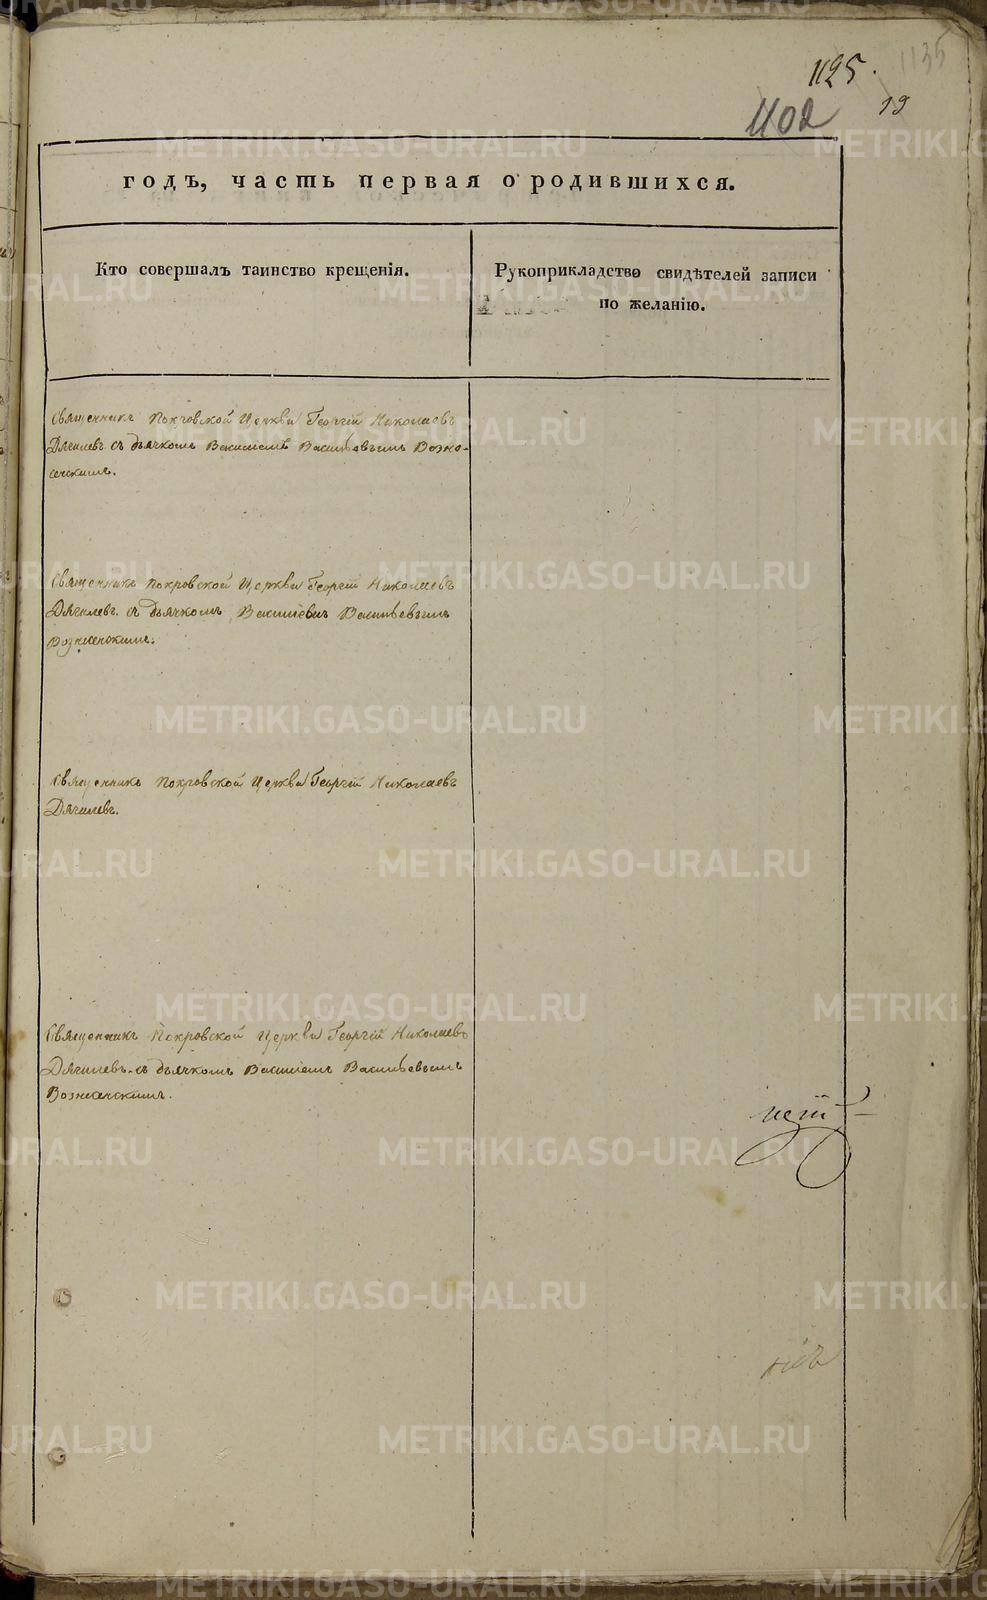 1135
1125.
1102
19
годъ, часть первая о родившихся.
Кто совершалъ таинство крещенія.
Рукоприкладство свидѣтелей записи
по желанію.
Священникъ Покровской Церкви Георгій Николаевъ
Дягилевъ съ дьячкомъ Василіемъ Васильевымъ Возне-
сенскимъ.
Священникъ Покровской Церкви Георгій Николаевъ
Дягилевъ съ дьячкомъ Василіемъ Васильевымъ
Вознесенскимъ.
Священникъ Покровской Церкви Георгій Николаевъ
Дягилевъ.
Священникъ Покровской Церкви Георгій Николаевъ
Дягилевъ съ дьячкомъ Василіемъ Васильевымъ
Вознесенскимъ.
METRIKI.GASO-URAL.RU